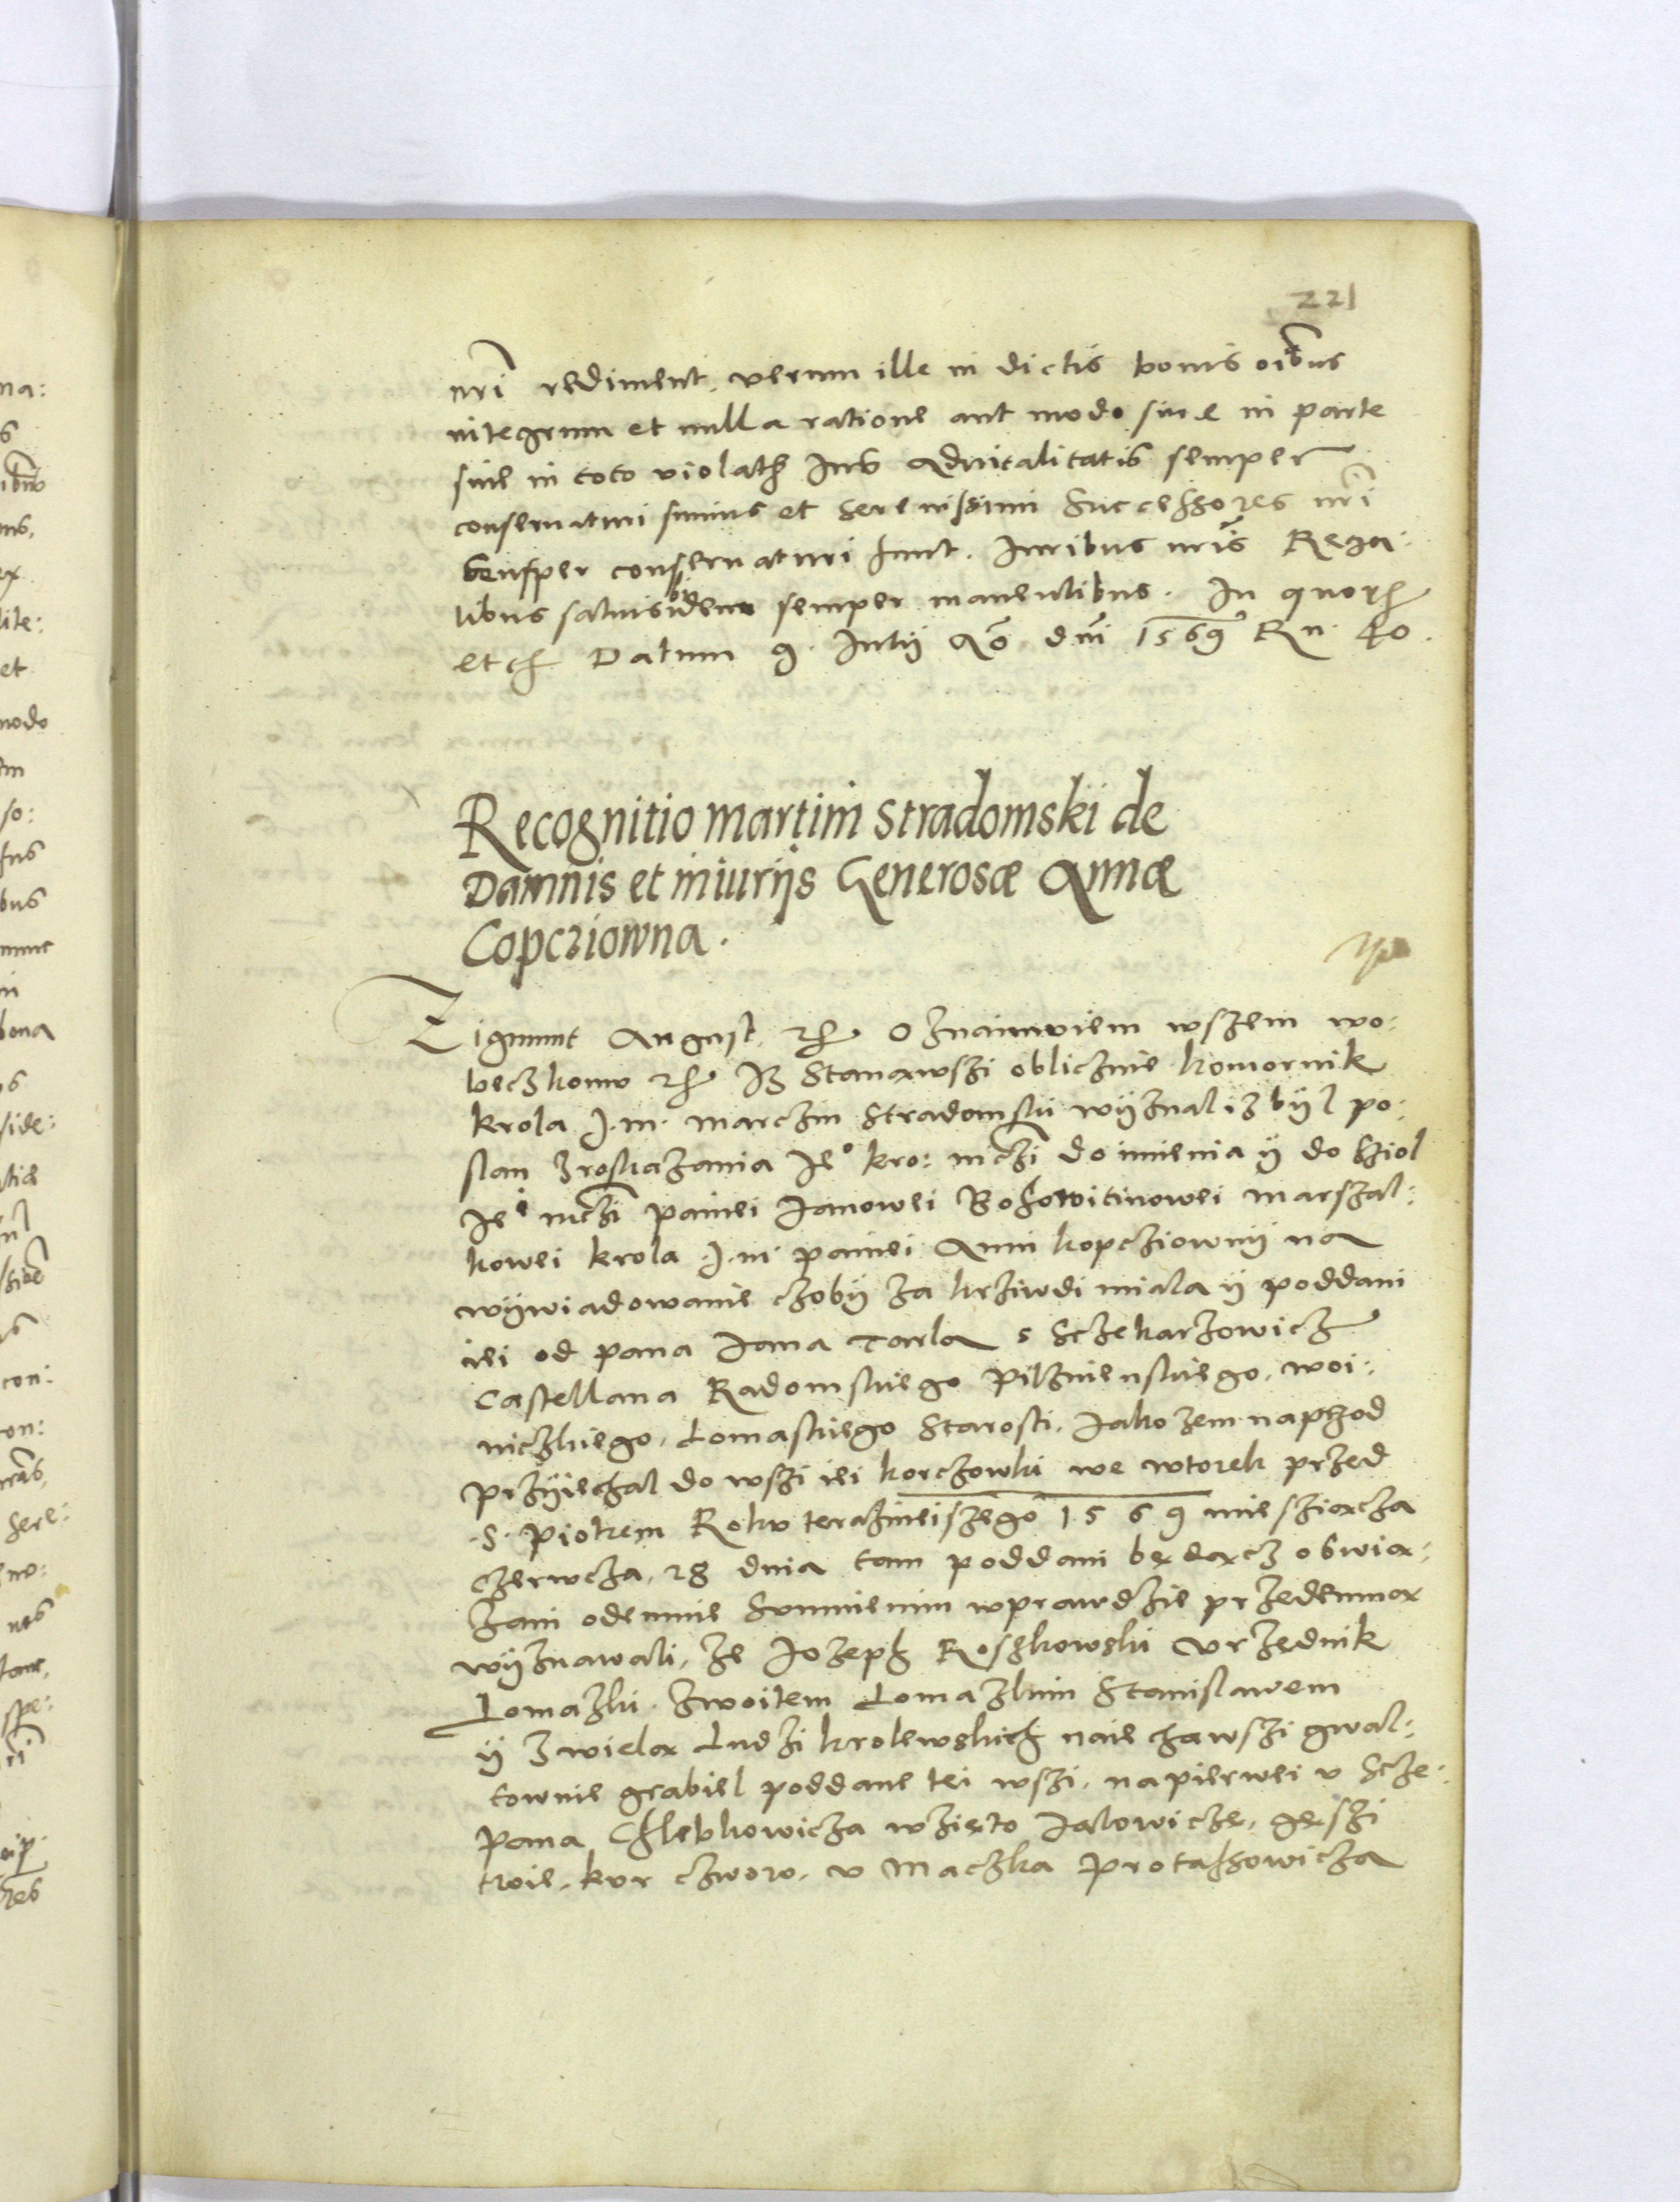 221
nri rediment, verum ille in dictis bonis oibus
integrum et nulla ratione aut modo siue in parte
siue in toto violatum Ius Aduitalitatis semper
conseruaturi sumus et Serenissimi Successores nri
semper conseruaturi sunt. Iuribus nris Rega:
libus saluis ibidem semper manentibus. In quorum
etc Datum 9. Iulij Ao dni 1569 Rn. 40.
Recognitio Martini Stradomski de
Damnis et iniurijs Generosæ Annæ
Copcziowna.
Zigmunt August, etc Oznaimuiem wszem wo:
beczkomu etc Iż Stanąwszi oblicznie komornik
krola J.M. Marczin Stradomski wyznal iz byl po:
slan z roskazania Ie° kro: mczi do imienia y do Sziol
Ie i mczi paniei Janowei Bohowitinowei Marszal:
kowei krola J.M. paniei Anni kopcziowny na
wywiadowanie czoby za krziwdi miala y poddani
iei od pana Jana Tarla s Sczekarzowicz
Castellana Radomskiego Pilznienskiego, woi:
niczkiego, Lomaskiego Starosti. Iakozem naprzod
przyiechal do wszi iei korczowki we wtorek przed
.S. Piotrem Roku teraznieiszego 1569 miesziącza
Czerwcza, 28 dnia tam poddani bedącz obwią:
zani odemnie Sumnienim wprawdzie przedemną
wyznawali, ze Jozeph Roszkowski Vrzednik
Lomazki. Zwoitem Lomazkim Stanislawem
y z wielą Ludzi krolewskich naiechawszi gwal:
townie grabiel poddane tei wszi, napierwei v Scze:
pana Chlebkowicza wzięto Ialowicze, gęszi
troie, kur czworo, v Maczka Protassowicza